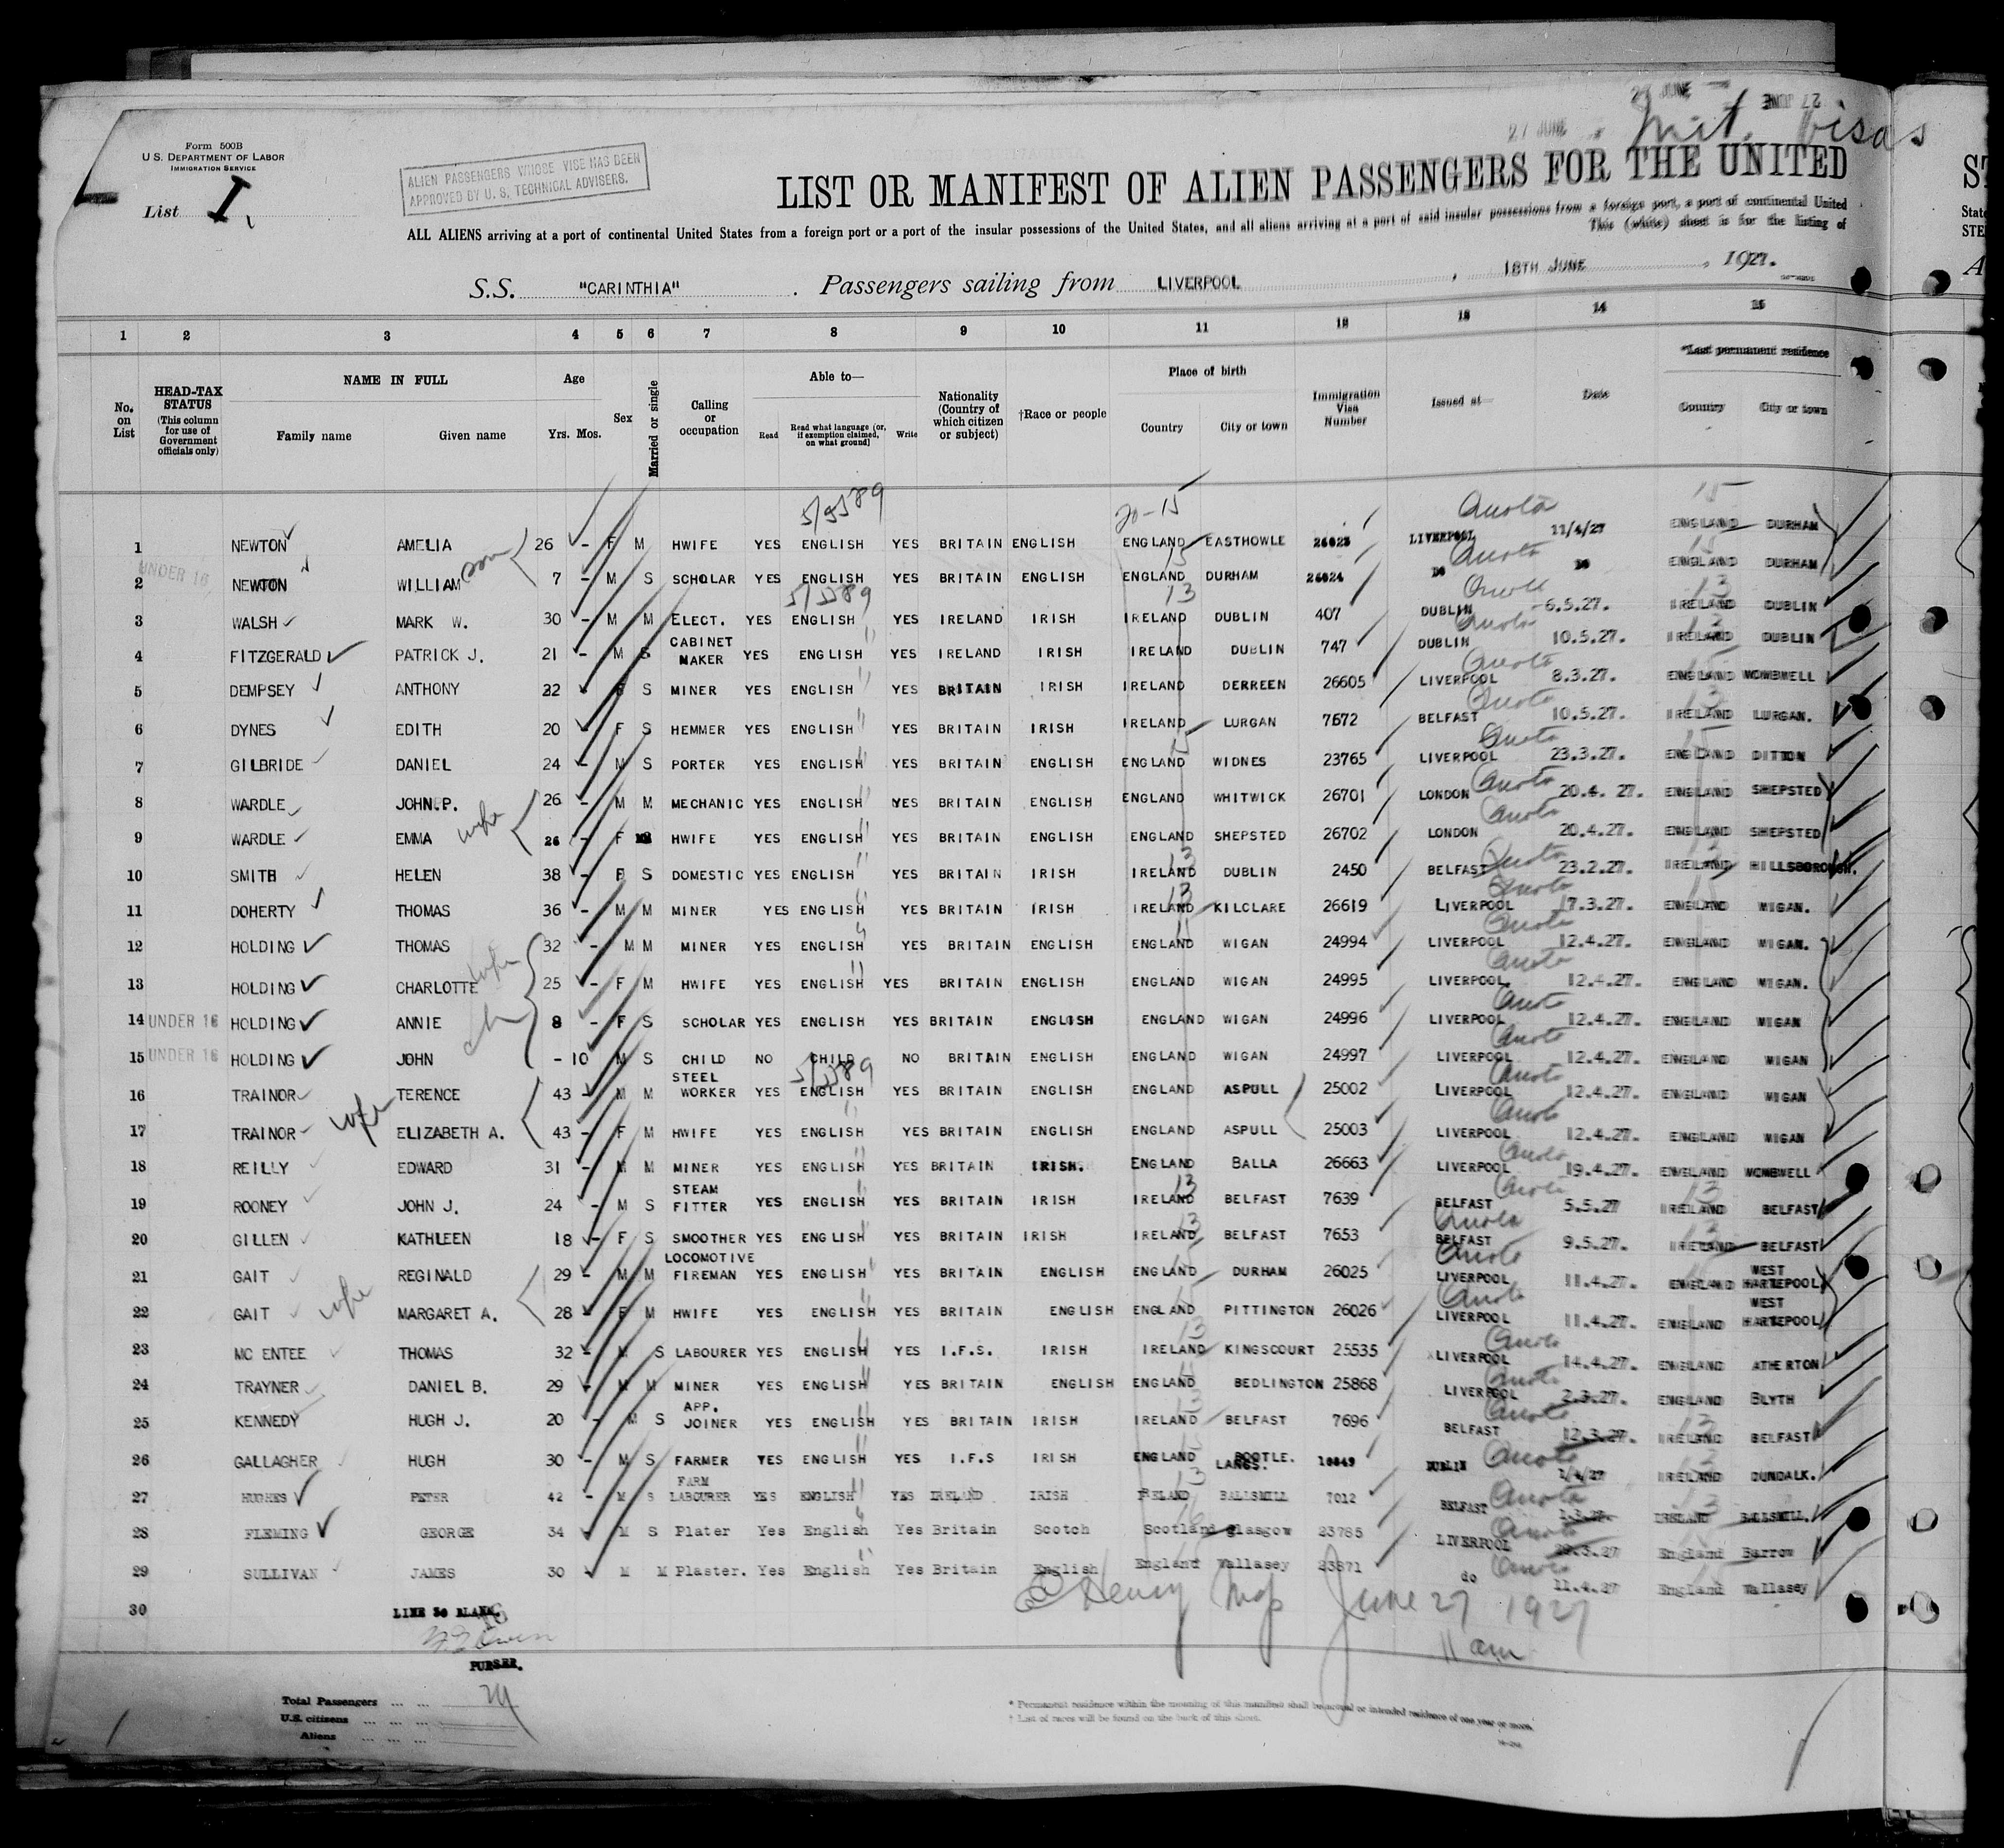 27 JUNE
27 JUNE
Imt. Visas
Form 500B
U.S. DEPARTMENT OF LABOR
IMMIGRATION SERVICE
List I
ALIEN PASSENGERS WHOSE VISE HAS BEEN
APPROVED BY U. S. TECHNICAL ADVISERS.
LIST OR MANIFEST OF ALIEN PASSENGERS FOR THE UNITED
ALL ALIENS arriving at a port of continental United States from a foreign port or a port of the insular possessions of the United States, and all aliens arriving at a port of said insular possessions from a foreign port, a port of continental United
This (white) sheet is for the listing of
S.S. "CARINTHIA". Passengers sailing from LIVERPOOL, 18TH JUNE, 1927.
1 2 3 4 5 6 7 8 9 10 11 12 13 14 15
No. on List
HEAD-TAX STATUS (This column for use of Government officials only)
NAME IN FULL
Family name Given name
Age Yrs. Mos.
Sex
Married or single
Calling or occupation
Able to— Read Read what language (or, if exemption claimed, on what ground) Write
Nationality (Country of which citizen or subject)
†Race or people
Place of birth Country City or town
Immigration Visa Number
Issued at— Date
*Last permanent residence Country City or town
5/5589 20-15 Quota 15
1 NEWTON AMELIA 26 - F M HWIFE YES ENGLISH YES BRITAIN ENGLISH ENGLAND EASTHOWLE 26023 LIVERPOOL 11/4/27 ENGLAND DURHAM
2 UNDER 16 NEWTON WILLIAM son 7 - M S SCHOLAR YES ENGLISH YES BRITAIN ENGLISH ENGLAND DURHAM 26024 DO DO ENGLAND DURHAM
3 WALSH MARK W. 30 - M M ELECT. YES ENGLISH YES IRELAND IRISH IRELAND DUBLIN 407 DUBLIN 6.5.27. IRELAND DUBLIN
4 FITZGERALD PATRICK J. 21 - M S CABINET MAKER YES ENGLISH YES IRELAND IRISH IRELAND DUBLIN 747 DUBLIN 10.5.27. IRELAND DUBLIN
5 DEMPSEY ANTHONY 22 S MINER YES ENGLISH YES BRITAIN IRISH IRELAND DERREEN 26605 LIVERPOOL 8.3.27. ENGLAND WOMBWELL
6 DYNES EDITH 20 - F S HEMMER YES ENGLISH YES BRITAIN IRISH IRELAND LURGAN 7672 BELFAST 10.5.27. IRELAND LURGAN.
7 GILBRIDE DANIEL 24 - M S PORTER YES ENGLISH YES BRITAIN ENGLISH ENGLAND WIDNES 23765 LIVERPOOL 23.3.27. ENGLAND DITTON
8 WARDLE JOHN.P. 26 - M M MECHANIC YES ENGLISH YES BRITAIN ENGLISH ENGLAND WHITWICK 26701 LONDON 20.4. 27. ENGLAND SHEPSTED
9 WARDLE EMMA wife 26 - F HWIFE YES ENGLISH YES BRITAIN ENGLISH ENGLAND SHEPSTED 26702 LONDON 20.4.27. ENGLAND SHEPSTED
10 SMITH HELEN 38 - F S DOMESTIC YES ENGLISH YES BRITAIN IRISH IRELAND DUBLIN 2450 BELFAST 23.2.27. IRELAND HILLSBOROUGH.
11 DOHERTY THOMAS 36 - M M MINER YES ENGLISH YES BRITAIN IRISH IRELAND KILCLARE 26619 LIVERPOOL 17.3.27. ENGLAND WIGAN.
12 HOLDING THOMAS 32 - M M MINER YES ENGLISH YES BRITAIN ENGLISH ENGLAND WIGAN 24994 LIVERPOOL 12.4.27. ENGLAND WIGAN.
13 HOLDING CHARLOTTE wife 25 - F M HWIFE YES ENGLISH YES BRITAIN ENGLISH ENGLAND WIGAN 24995 LIVERPOOL. 12.4.27. ENGLAND WIGAN.
14 UNDER 16 HOLDING ANNIE ch 8 - F S SCHOLAR YES ENGLISH YES BRITAIN ENGLISH ENGLAND WIGAN 24996 LIVERPOOL 12.4.27. ENGLAND WIGAN
15 UNDER 16 HOLDING JOHN - 10 M S CHILD NO CHILD NO BRITAIN ENGLISH ENGLAND WIGAN 24997 LIVERPOOL 12.4.27. ENGLAND WIGAN
16 TRAINOR TERENCE 43 - M M STEEL WORKER YES ENGLISH YES BRITAIN ENGLISH ENGLAND ASPULL 25002 LIVERPOOL 12.4.27. ENGLAND WIGAN
17 TRAINOR wife ELIZABETH A. 43 - F M HWIFE YES ENGLISH YES BRITAIN ENGLISH ENGLAND ASPULL 25003 LIVERPOOL 12.4.27. ENGLAND WIGAN
18 REILLY EDWARD 31 - M M MINER YES ENGLISH YES BRITAIN IRISH. ENGLAND BALLA 26663 LIVERPOOL 19.4.27. ENGLAND WOMBWELL
19 ROONEY JOHN J. 24 - M S STEAM FITTER YES ENGLISH YES BRITAIN IRISH IRELAND BELFAST 7639 BELFAST 5.5.27 IRELAND BELFAST
20 GILLEN KATHLEEN 18 - F S SMOOTHER YES ENGLISH YES BRITAIN IRISH IRELAND BELFAST 7653 BELFAST 9.5.27. IRELAND BELFAST
21 GAIT REGINALD 29 - M M LOCOMOTIVE FIREMAN YES ENGLISH YES BRITAIN ENGLISH ENGLAND DURHAM 26025 LIVERPOOL 11.4.27. ENGLAND WEST HARTLEPOOL
22 GAIT wife MARGARET A. 28 F M HWIFE YES ENGLISH YES BRITAIN ENGLISH ENGLAND PITTINGTON 26026 LIVERPOOL 11.4.27. ENGLAND WEST HARTLEPOOL
23 MC ENTEE THOMAS 32 - M S LABOURER YES ENGLISH YES I.F.S. IRISH IRELAND KINGSCOURT 25535 LIVERPOOL 14.4.27. ENGLAND ATHERTON
24 TRAYNER DANIEL B. 29 - M M MINER YES ENGLISH YES BRITAIN ENGLISH ENGLAND BEDLINGTON 25868 LIVERPOOL 2.3.27. ENGLAND BLYTH
25 KENNEDY HUGH J. 20 - M S APP. JOINER YES ENGLISH YES BRITAIN IRISH IRELAND BELFAST 7696 BELFAST 12.3.27. IRELAND BELFAST
26 GALLAGHER HUGH 30 - M S FARMER YES ENGLISH YES I.F.S IRISH ENGLAND BOOTLE. LANCS. 10849 DUBLIN 1/4/27 IRELAND DUNDALK.
27 HUGHES PETER 42 - M S FARM LABOURER YES ENGLISH YES IRELAND IRISH IRELAND BALLSMILL 7012 BELFAST IRELAND BALLSMILL.
28 FLEMING GEORGE 34 M S Plater Yes English Yes Britain Scotch Scotland Glasgow 23785 LIVERPOOL England Barrow
29 SULLIVAN JAMES 30 M M Plaster. Yes English Yes Britain English England Wallasey 23871 do 11.4.27 England Wallasey
30 LINE 30 BLANK.
Henry Insp June 27 1927
11 am
PURSER.
Total Passengers ... ...
U.S. citizens ... ... ...
Aliens ... ... ...
* Permanent residence within the meaning of this manifest shall be actual or intended residence of one year or more.
† List of races will be found on the back of this sheet.